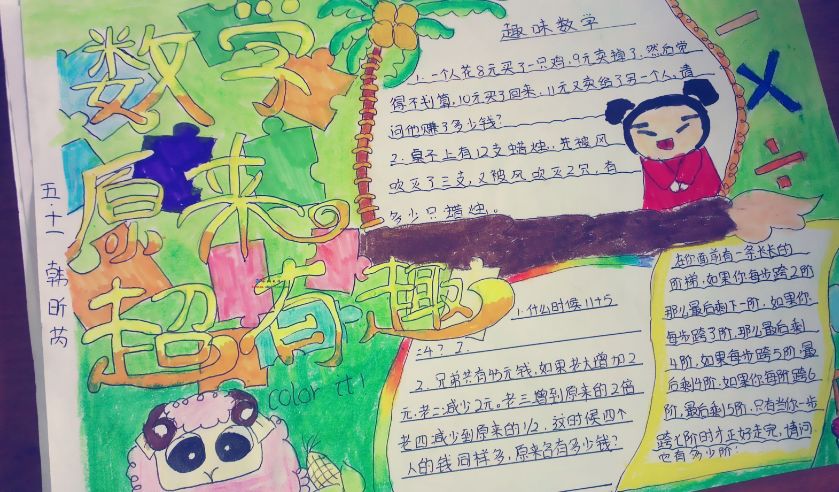 数学
原来。
超有趣
五·十一 韩昕芮
color it!
趣味数学
1. 一个人花8元买了一只鸡,9元卖掉了,然后觉
得不划算,10元买了回来,11元又卖给了另一个人,请
问他赚了多少钱?
2. 桌子上有12支蜡烛,先被风
吹灭了三支,又被风吹灭2只,有
多少只蜡烛。
1. 什么时候 11+5
=4? 2.
2. 兄弟共有45元钱,如果老大增加2
元,老二减少2元。老三增到原来的2倍
老四减少到原来的1/2,这时候四个
人的钱同样多,原来各有多少钱?
在你面前有一条长长的
阶梯,如果你每步跨2阶
那么最后剩下一阶,如果你
每步跨3阶,那么最后剩
4阶,如果每步跨5阶,最
后剩4阶,如果你每阶跨6
阶,最后剩5阶,只有当你一步
跨七阶时才正好走完,请问
也有多少阶?